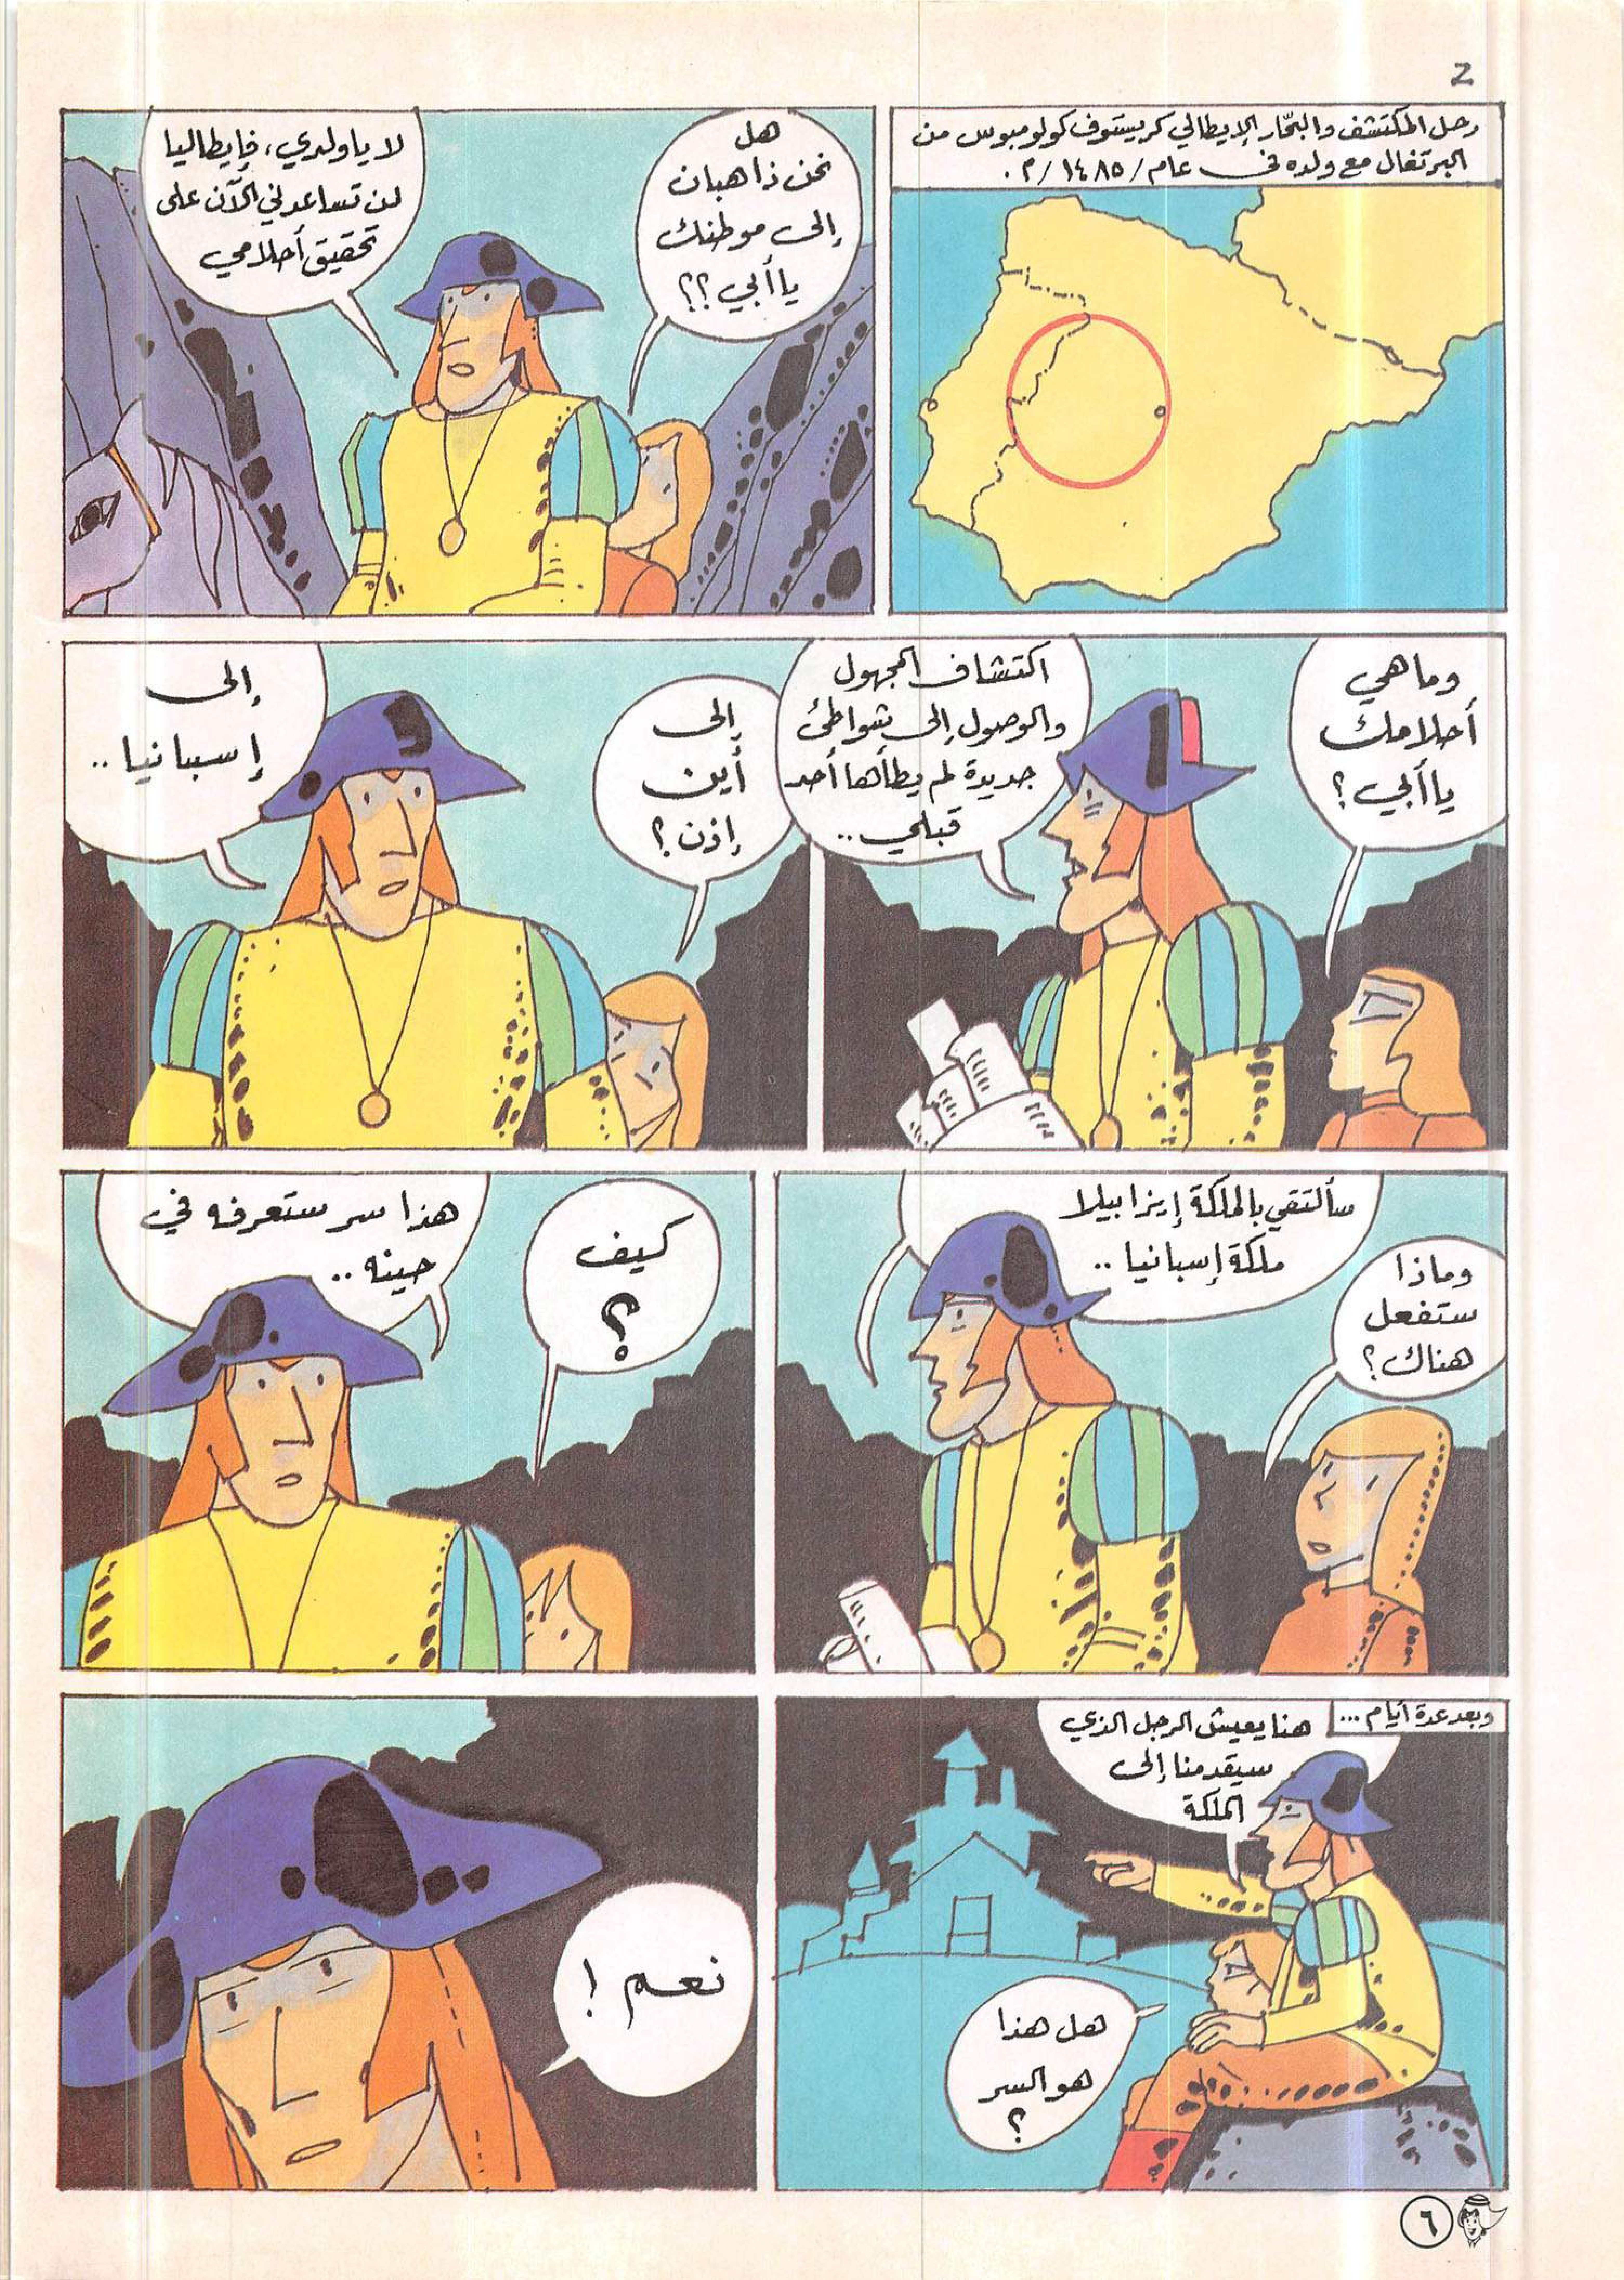 2
رحل المكتشف والبحّار الإيطالي كريستوف كولومبوس من
البرتغال مع ولده في عام /١٤٨٥/م.
هل
نحن ذاهبان
إلى موطنك
يا أبي؟؟
لا يا ولدي، فإيطاليا
لن تساعدني الآن على
تحقيق أحلامي
وما هي
أحلامك
يا أبي؟
اكتشاف المجهول
والوصول إلى شواطئ
جديدة لم يطأها أحد
قبلي..
إلى
أين
إذن؟
إلى
إسبانيا..
وماذا
ستفعل
هناك؟
سألتقي بالملكة إيزابيلا
ملكة إسبانيا..
كيف
؟
هذا سر ستعرفه في
حينه..
وبعد عدة أيام...
هنا يعيش الرجل الذي
سيقدمنا إلى
الملكة
هل هذا
هو السر
؟
نعم!
٦